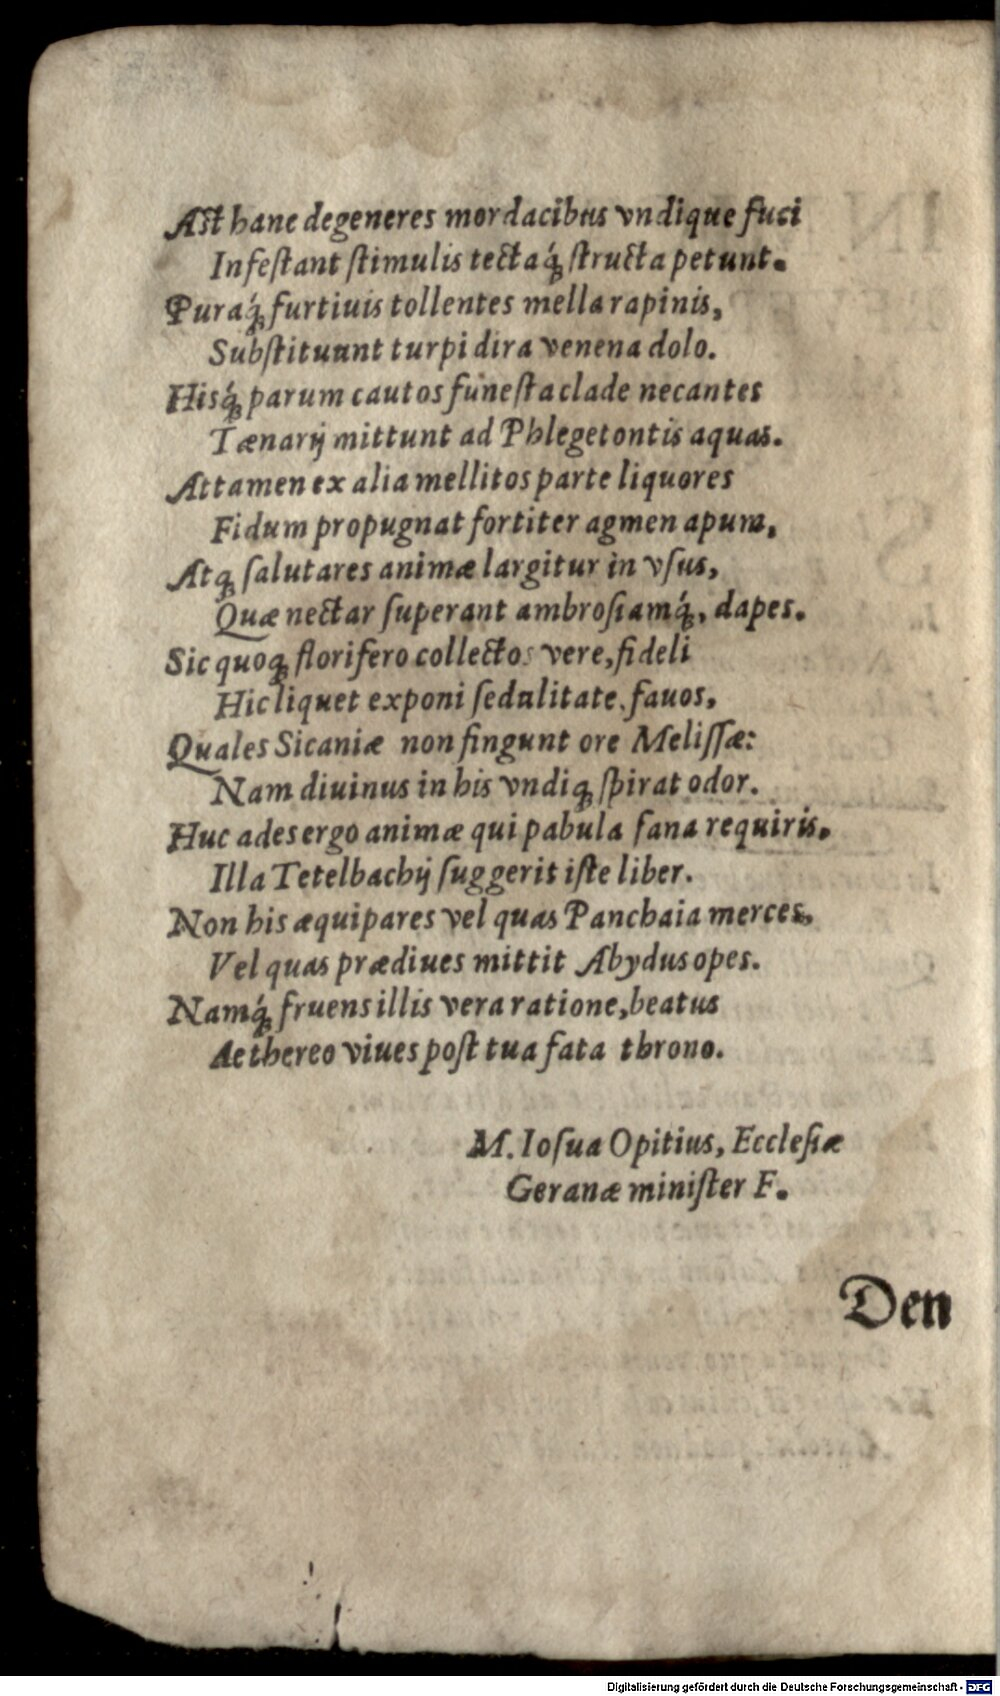 Aſt hanc degeneres mordacibus vndique fuci
Infeſtant ſtimulis tectaq́; ſtructa petunt.
Puraq́; furtiuis tollentes mella rapinis,
Subſtituunt turpi dira venena dolo.
Hisq́; parum cautos funeſta clade necantes
Tænarij mittunt ad Phlegetontis aquas.
Attamen ex alia mellitos parte liquores
Fidum propugnat fortiter agmen apum,
Atq; ſalutares animæ largitur in vſus,
Quæ nectar ſuperant ambroſiamq́;, dapes.
Sic quoq; florifero collectos vere, fideli
Hic liquet exponi ſedulitate. fauos,
Quales Sicaniæ non fingunt ore Meliſſæ:
Nam diuinus in his vndiq; ſpirat odor.
Huc ades ergo animæ qui pabula ſana requiris,
Illa Tetelbachij ſuggerit iſte liber.
Non his æquipares vel quas Panchaia merces,
Vel quas prædiues mittit Abydus opes.
Namq́; fruens illis vera ratione, beatus
Aethereo viues poſt tua fata throno.
M. Ioſua Opitius, Eccleſiæ
Geranæ miniſter F.
Den
Digitalisierung gefördert durch die Deutsche Forschungsgemeinschaft - DFG